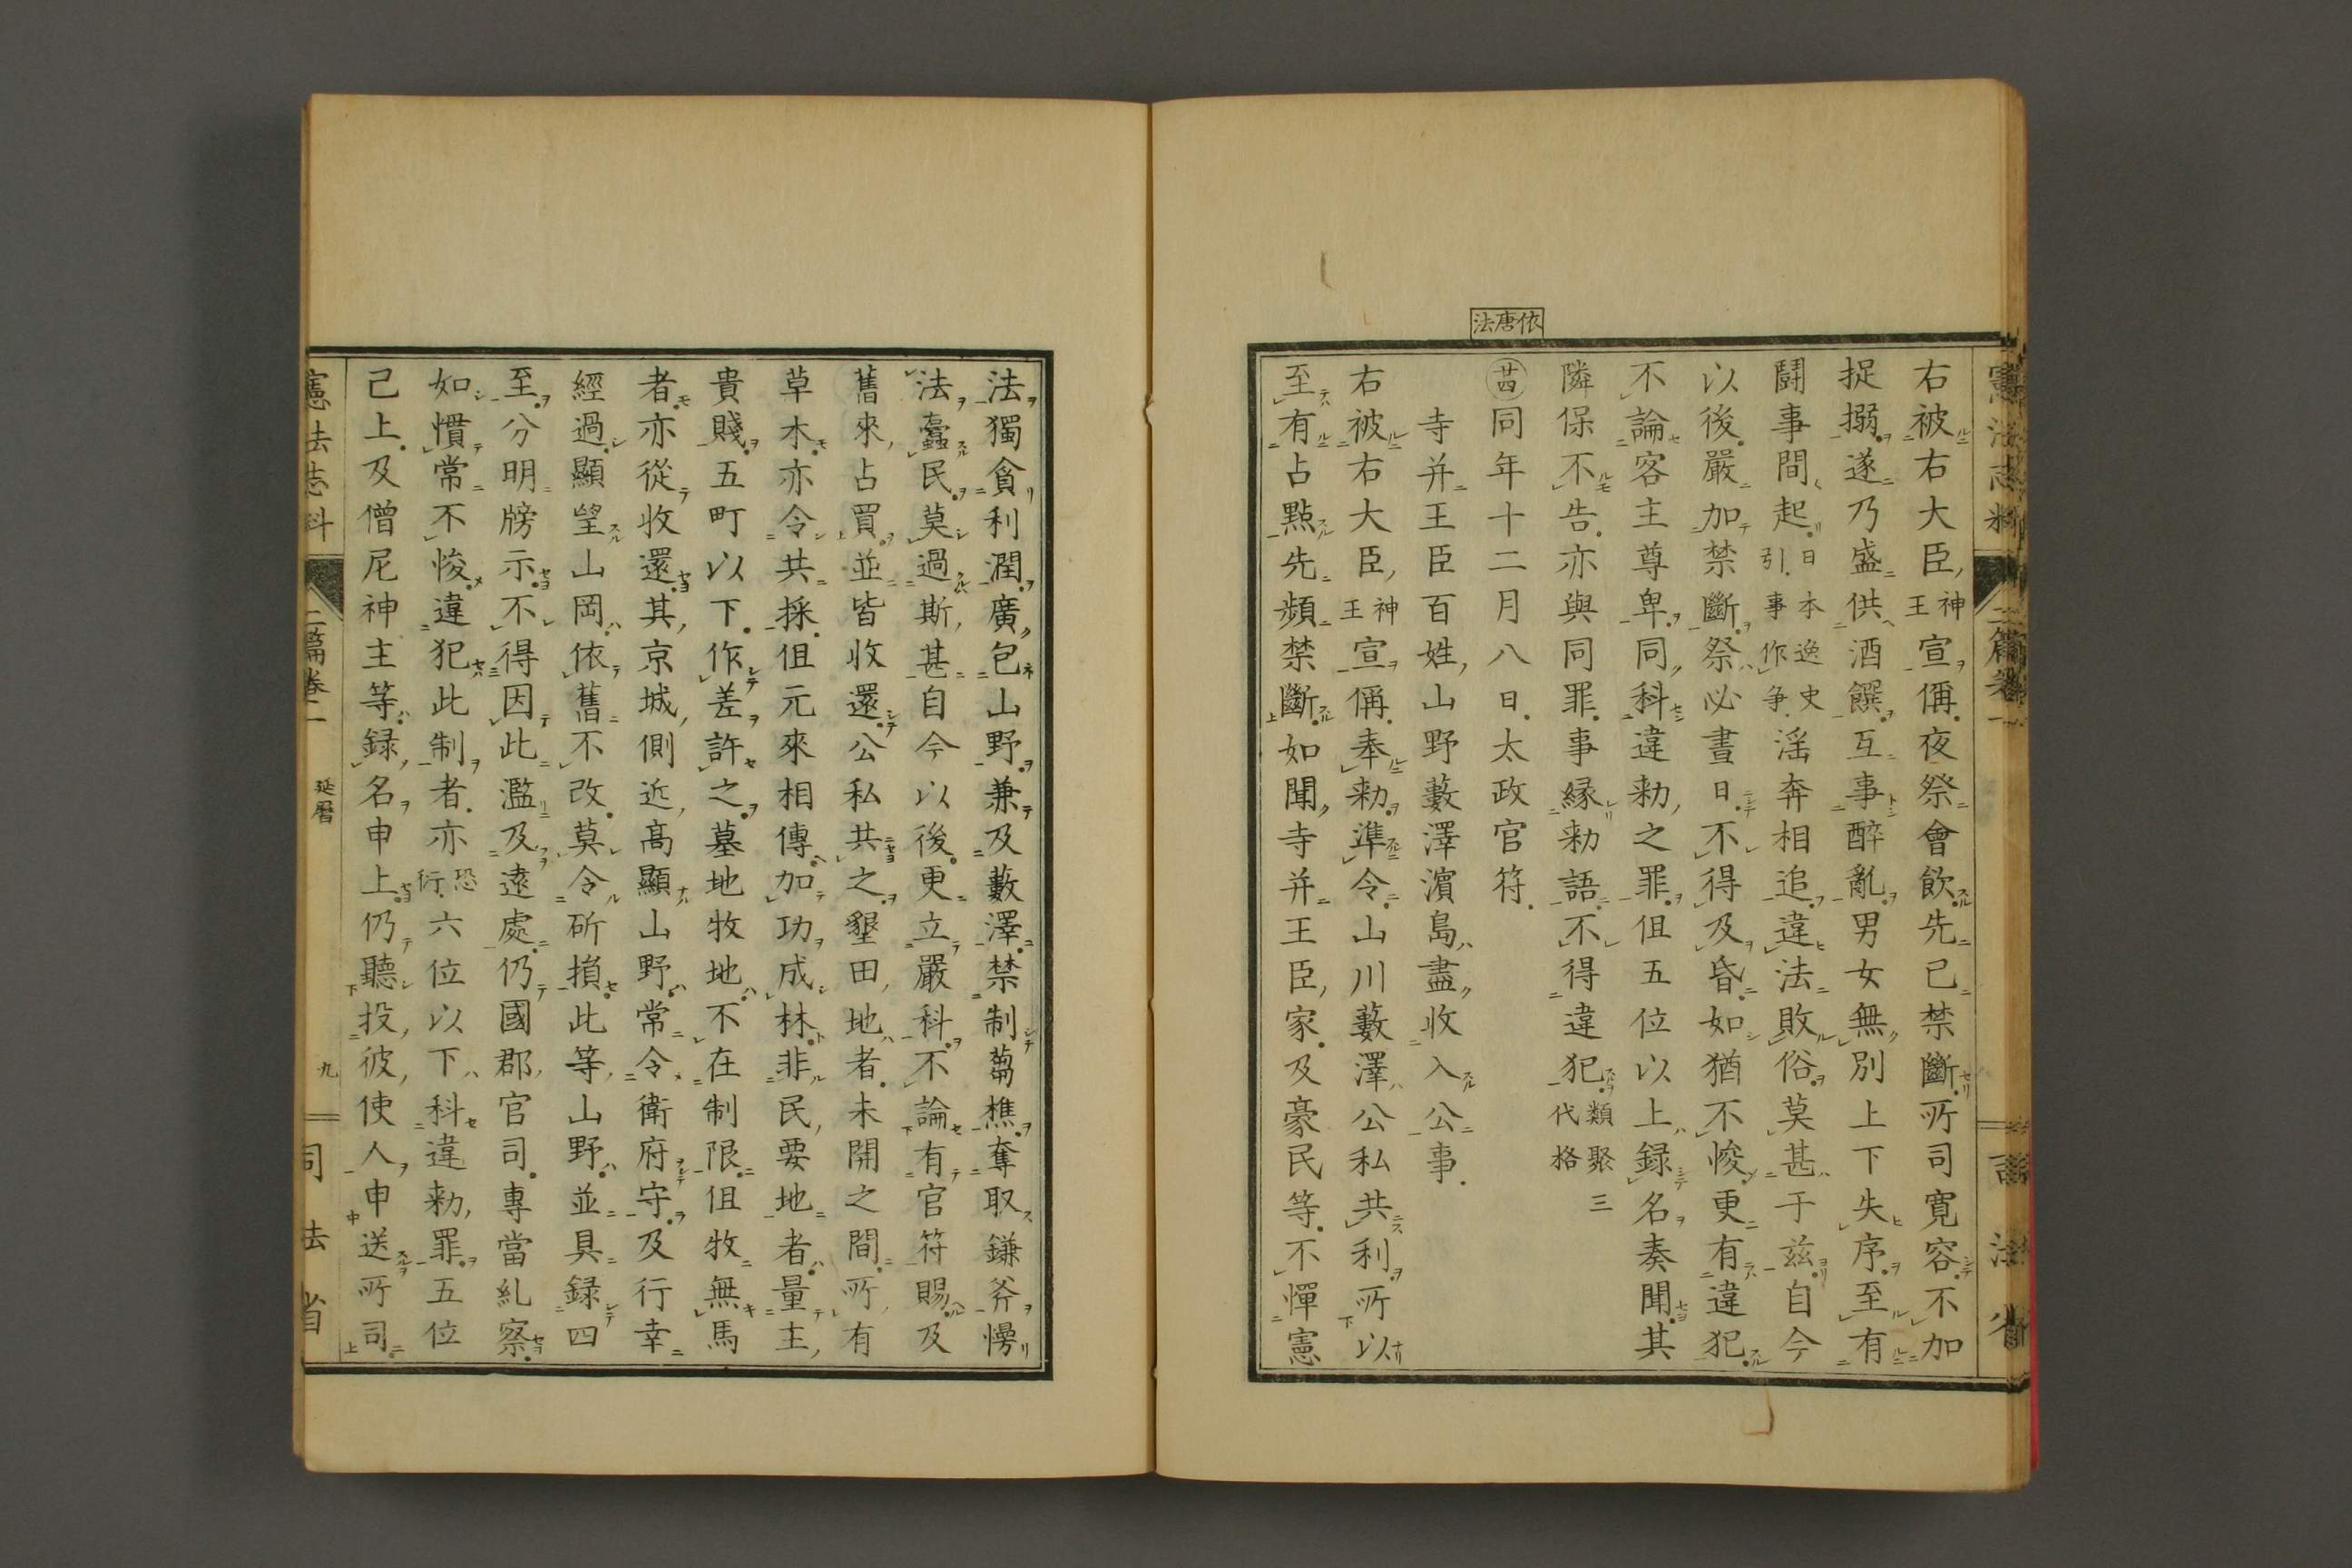 憲法志料
二篇卷二
司法省
右被右大臣神王宣偁夜祭會飲先已禁斷所司寛容不加
捉搦遂乃盛供酒饌互事醉亂男女無別上下失序至有
鬪事間起日本逸史引事作爭淫奔相追違法敗俗莫甚于兹自今
以後嚴加禁斷祭必晝日不得及昏如猶不悛更有違犯
不論客主尊卑同科違勅之罪但五位以上録名奏聞其
隣保不告亦與同罪事縁勅語不得違犯類聚三代格
依唐法
廿四同年十二月八日太政官符
寺并王臣百姓山野藪澤濱島盡收入公事
右被右大臣神王宣偁奉勅準令山川藪澤公私共利所以
至有占點先頻禁斷如聞寺并王臣家及豪民等不憚憲
法獨貪利潤廣包山野兼及藪澤禁制蒭樵奪取鎌斧慢
法蠹民莫過斯甚自今以後更立嚴科不論有官符賜及
舊來占買並皆收還公私共之墾田地者未開之間所有
草木亦令共採但元來相傳加功成林非民要地者量主
貴賤五町以下作差許之墓地牧地不在制限但牧無馬
者亦從收還其京城側近高顯山野常令衛府守及行幸
經過顯望山岡依舊不改莫令斫損此等山野並具録四
至分明牓示不得因此濫及遠處仍國郡官司專當糺察
如慣常不悛違犯此制者亦恐衍六位以下科違勅罪五位
已上及僧尼神主等録名申上仍聽投彼使人申送所司
憲法志料
二篇卷二
延暦
九
司法省